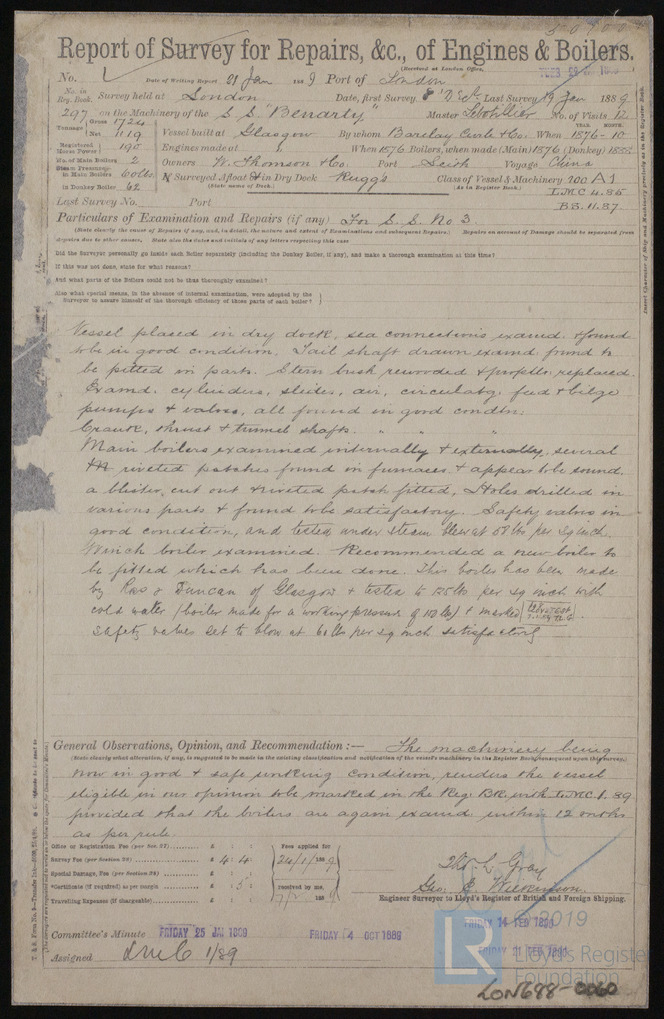 50900
Report of Survey for Repairs, &c., of Engines & Boilers.
(Received at London Office,
No. Date of Writing Report 21 Jan 1889 Port of London
No. in Reg. Book. Survey held at London Date, first Survey 8 Last Survey 19 Jan 1889
297 on the Machinery of the S.S. "Benarty" Master No. of Visits 12
Tonnage Gross 1724 Net 1119 Vessel built at Glasgow By whom Barclay Curle & Co. When 1876-10
Registered Horse Power 190 Engines made at " When 1876 Boilers, when made (Main) 1876 (Donkey) 1888
No. of Main Boilers 2 Owners W. Thomson & Co. Port Leith Voyage China
Steam Pressure in Main Boilers 60 lbs Surveyed Afloat & in Dry Dock Rugg's Class of Vessel & Machinery 100 A1
in Donkey Boiler 62 (State name of Dock.) (As in Register Book.) L.M.C 4.85
Last Survey No. Port B.S. 11.87
Particulars of Examination and Repairs (if any) For S.S. No 3.
(State clearly the cause of Repairs if any, and, in detail, the nature and extent of Examinations and subsequent Repairs.) Repairs on account of Damage should be separated from
Repairs due to other causes. State also the dates and initials of any letters respecting this case
Did the Surveyor personally go inside each Boiler separately (including the Donkey Boiler, if any), and make a thorough examination at this time?
If this was not done, state for what reason?
And what parts of the Boilers could not be thus thoroughly examined?
Also what special means, in the absence of internal examination, were adopted by the
Surveyor to assure himself of the thorough efficiency of those parts of each boiler?
Vessel placed in dry dock, sea connections examd. & found
to be in good condition. Tail shaft drawn examd. found to
be pitted in parts. Stern bush rewooded & propeller replaced.
Examd. cylinders, slides, air, circulatg. feed & bilge
pumps & valves, all found in good condtn:
Crank, thrust & tunnel shafts. " " "
Main boilers examined internally & externally, several
riveted patches found in furnaces & appear to be sound,
a blister cut out & riveted patch fitted, Holes drilled in
various parts & found to be satisfactory. Safety valves in
good condition, and tested under steam blew at 58 lbs per sq inch.
Winch boiler examined. Recommended a new boiler to
be fitted which has been done. This boiler has been made
by Ross & Duncan of Glasgow & tested to 125 lbs per sq inch with
cold water (boiler made for a working pressure of lbs) & marked
Safety valves set to blow at 61 lbs per sq inch satisfactory
General Observations, Opinion, and Recommendation:— The machinery being
(State clearly what alteration, if any, is suggested to be made in the existing classification and notification of the vessel's machinery in the Register Book consequent upon this survey.)
now in good & safe working condition, renders the vessel
eligible in our opinion to be marked in the Reg. Bk. with L.M.C. 1.89
provided that the boilers are again examd. within 12 months
as per rule.
Office or Registration Fee (per Sec. 27) £ : : Fees applied for
Survey Fee (per Section 28) £ 4 : 4 : 24/1/1889
Special Damage, Fee (per Section 28) £ : :
*Certificate (if required) as per margin : 5 : received by me,
Travelling Expenses (if chargeable) £ : :
Thos. L. Gray
Geo. C. Wilkinson.
Engineer Surveyor to Lloyd's Register of British and Foreign Shipping.
Committee's Minute FRIDAY 25 JAN 1889 FRIDAY 4 OCT 1889 FRIDAY 14 FEB 1890
FRIDAY 21 FEB
Assigned LMC 1/89
© 2019
LR Lloyd's Register
Foundation
LON698-0060